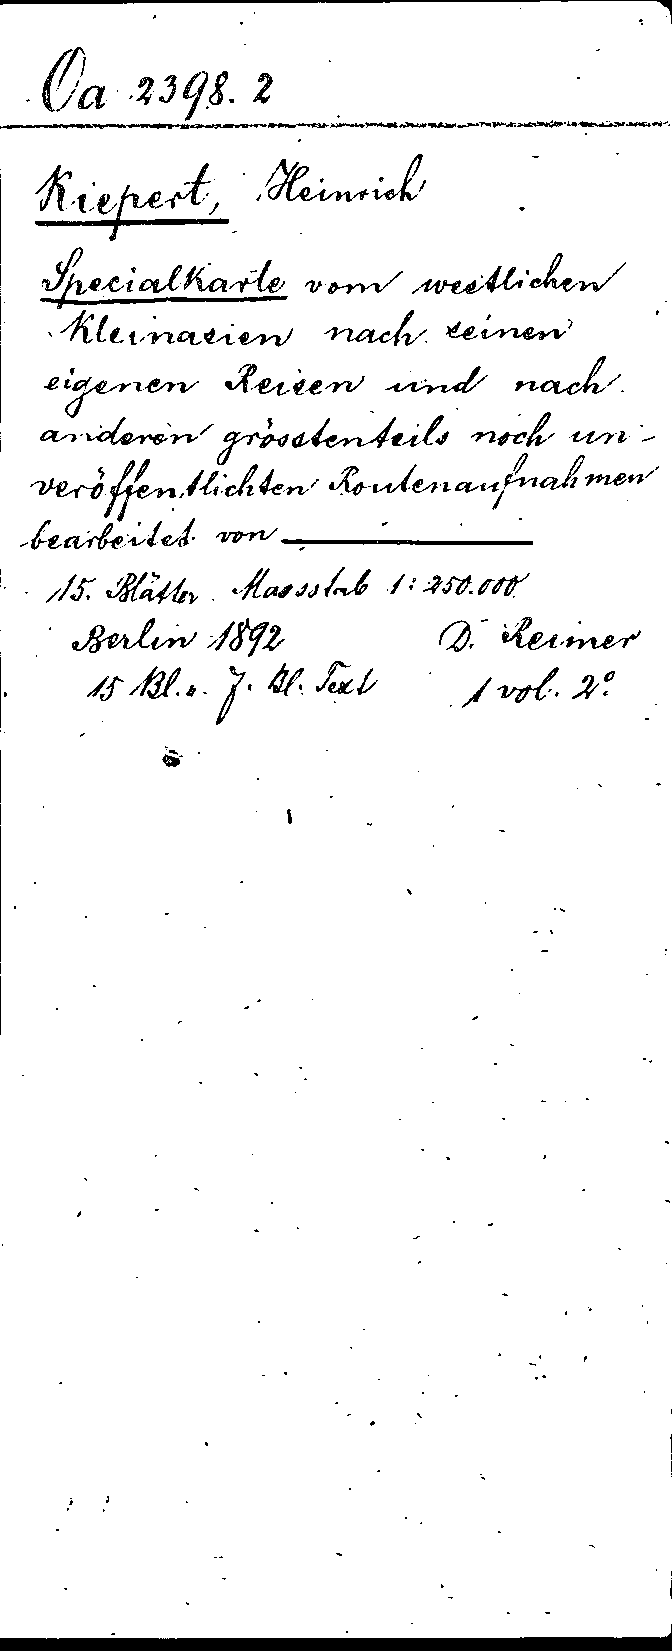 Oa 2398. 2
Kiepert, Heinrich
Specialkarte vom westlichen
Kleinasien nach seinen
eigenen Reisen und nach
anderen grösstenteils noch un-
veröffentlichten Routenaufnahmen
bearbeitet von ______
15. Blätter. Massstab 1:250.000.
Berlin 1892 D. Reimer
15 Bl. u. 7. Bl. Text 1 vol. 2°.